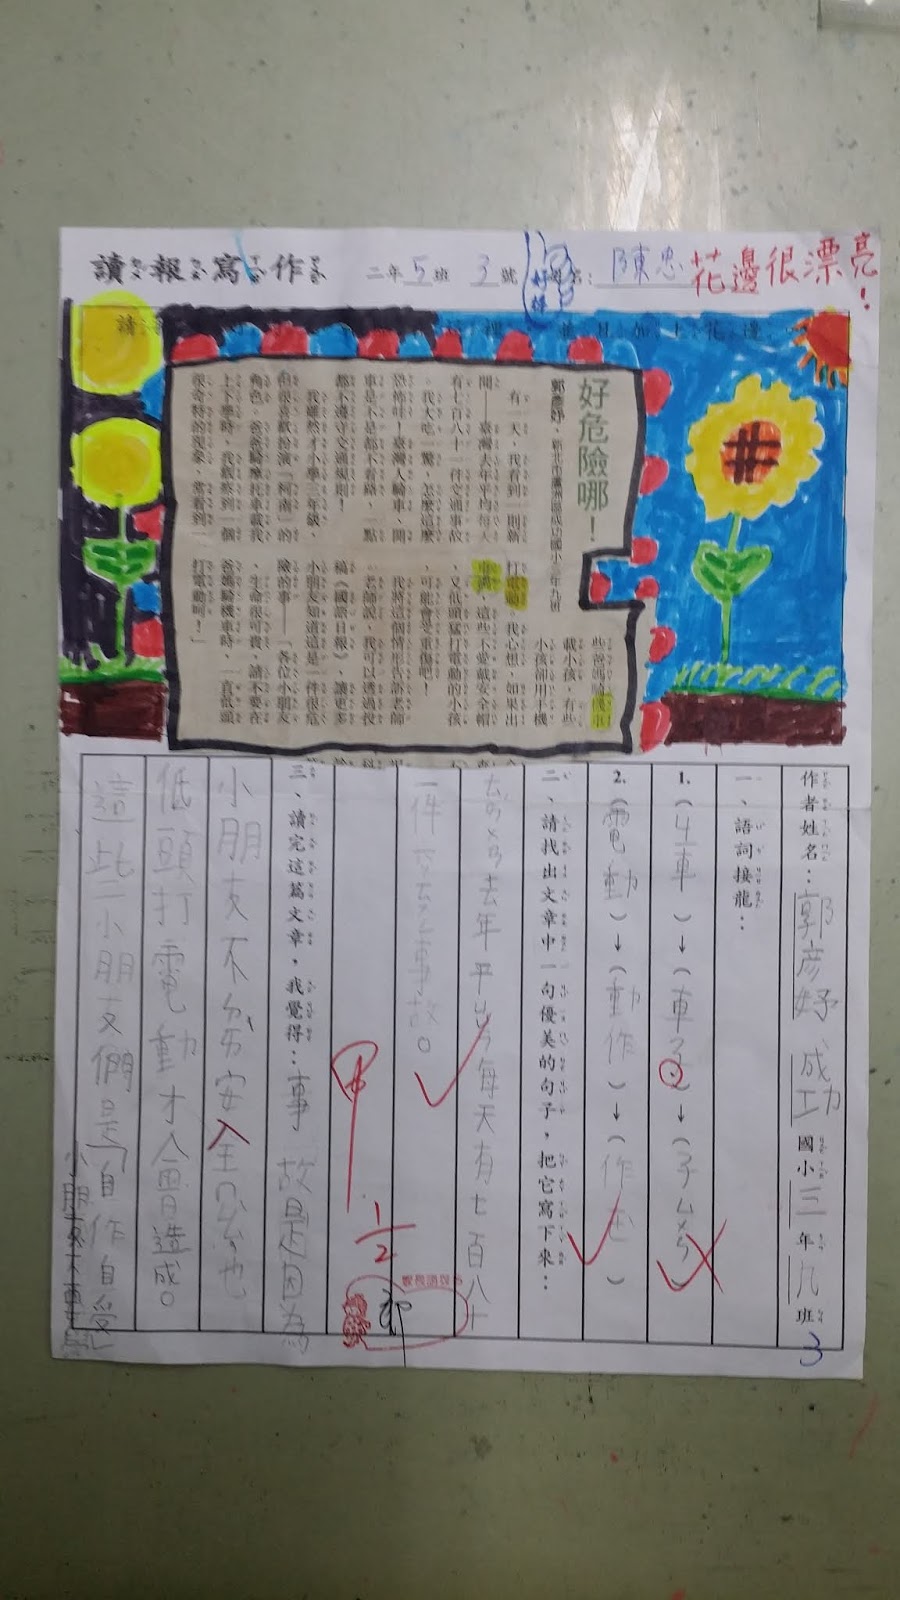 讀報寫作 二年5班 3號 姓名：陳忠
花邊很漂亮！
好棒
好危險哪！
郭彥妤．新北市蘆洲區成功國小三年九班
有一天，我看到一則新
聞──臺灣去年平均每天
有七百八十一件交通事故
。我大吃一驚，怎麼這麼
恐怖哇！臺灣人騎車、開
車是不是都不看路，一點
都不遵守交通規則！
我雖然才小學三年級，
但很喜歡扮演「柯南」的
角色。爸爸騎摩托車載我
上下學時，我觀察到一個
很奇特的現象，常看到一
些爸媽騎機車
載小孩，有些
小孩卻用手機
打電動
。我心想，如果出
車禍，這些不愛戴安全帽
、又低頭猛打電動的小孩
，可能會受重傷吧！
我將這個情形告訴老師
。老師說，我可以透過投
稿《國語日報》，讓更多
小朋友知道這是一件很危
險的事──「各位小朋友
，生命很可貴，請不要在
爸媽騎機車時，一直低頭
打電動呵！」
作者姓名：郭彥妤 成功國小三年九班
3
一、語詞接龍：
1.（ㄐ車）→（車子）→（子ㄙㄨㄣ）
2.（電動）→（動作）→（作）
二、請找出文章中一句優美的句子，把它寫下來：
去年平ㄐㄩㄣ每天有七百八十
一件
甲 1/2
三、讀完這篇文章，我覺得：事故是因為
小朋友不
安全
也
低頭打電動才會造成。
這些小朋友們是「自作自受
小朋友不要